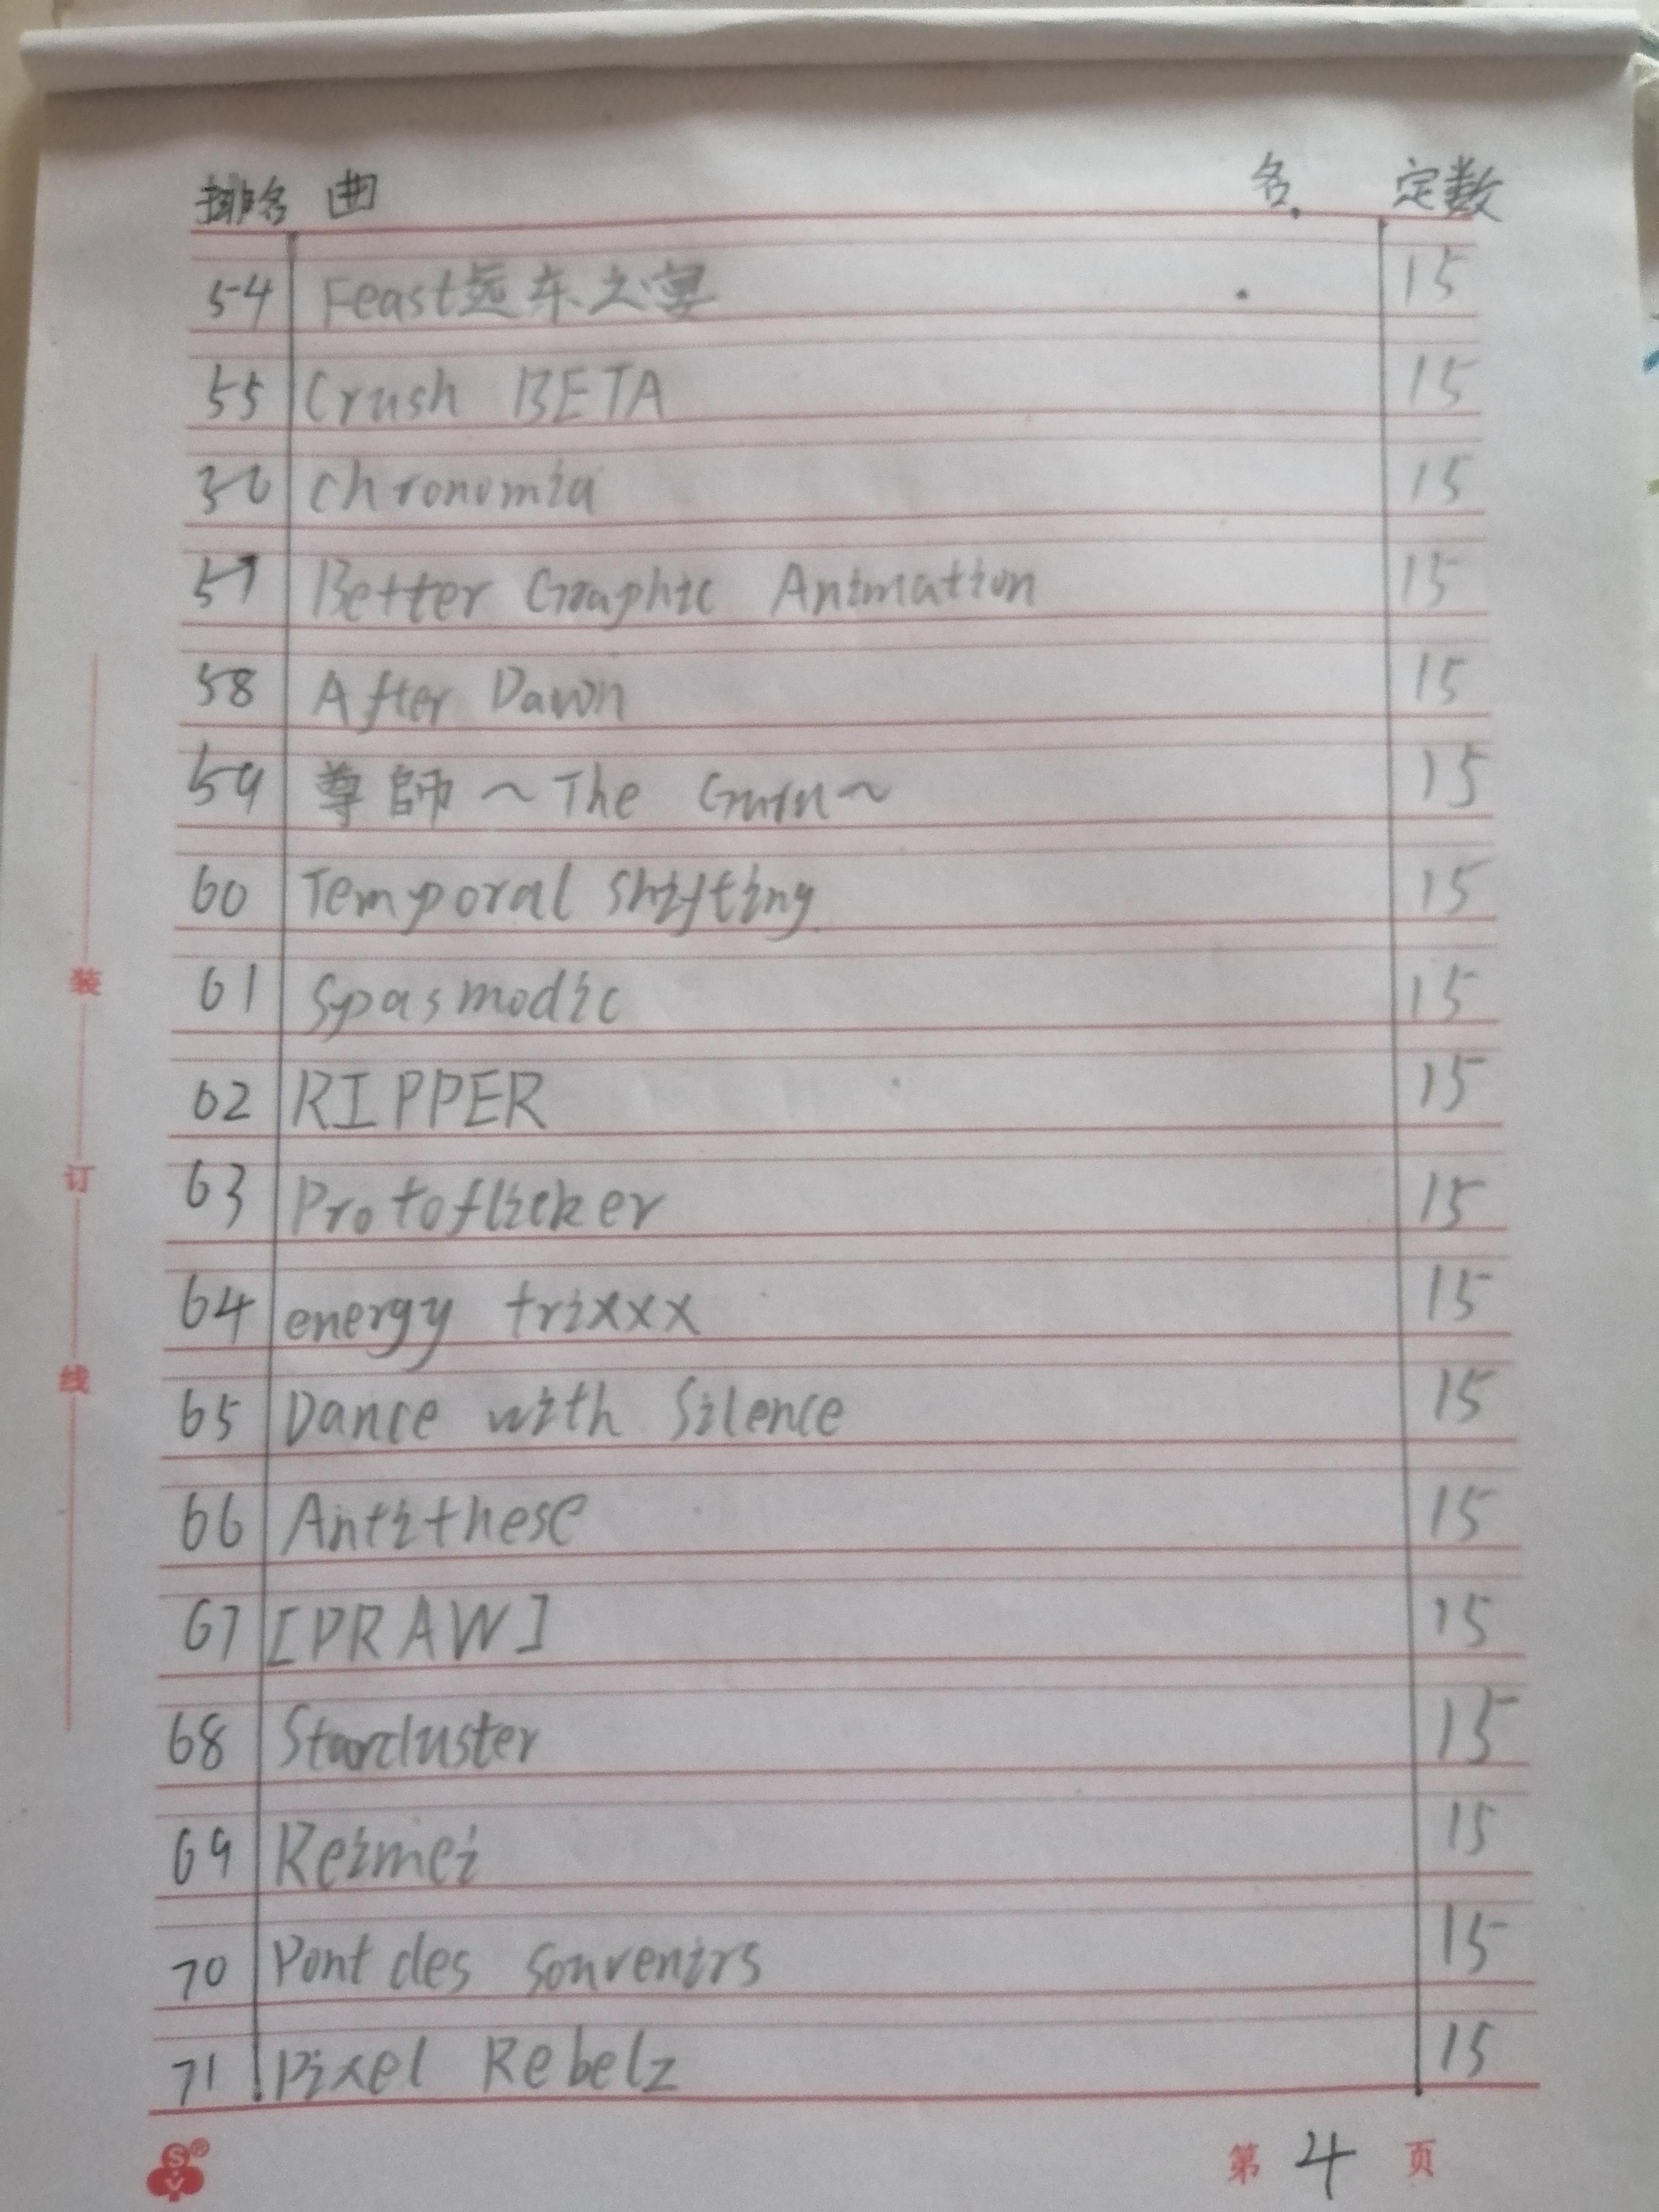 排名 曲 名 定数
54 Feast远东之宴 15
55 Crush BETA 15
56 Chronomia 15
57 Better Graphic Animation 15
58 After Dawn 15
59 尊師～The Guru～ 15
60 Temporal Shifting 15
61 Spasmodic 15
62 RIPPER 15
63 Protoflicker 15
64 energy trixxx 15
65 Dance with Silence 15
66 Antithese 15
67 [PRAW] 15
68 Starcluster 15
69 Reimei 15
70 Pont des souvenirs 15
71 Pixel Rebelz 15
装
订
线
第 4 页